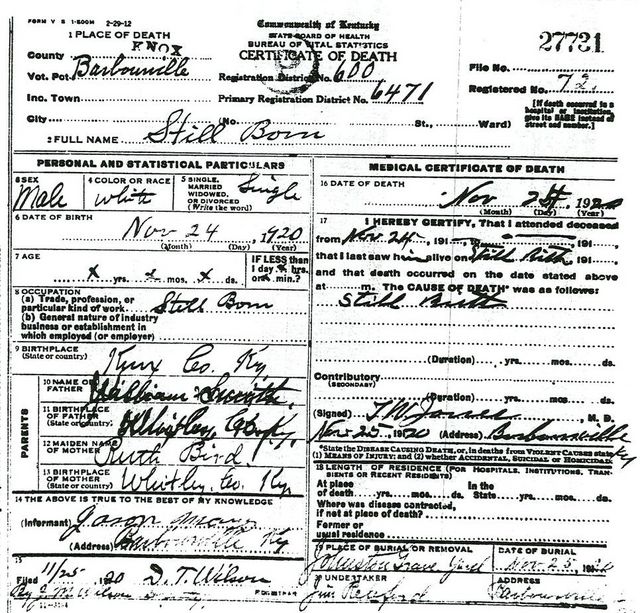 FORM V S 1-500M 2-29-12
Commonwealth of Kentucky
STATE BOARD OF HEALTH
BUREAU OF VITAL STATISTICS
CERTIFICATE OF DEATH
27731
1 PLACE OF DEATH
County KNOX
Vot. Pct. Barbourville
Inc. Town
City
Registration District No. 600
Primary Registration District No. 6471
(No St., Ward)
File No.
Registered No. 72
[If death occurred in a hospital or institution, give its NAME instead of street and number.]
2 FULL NAME Still Born
PERSONAL AND STATISTICAL PARTICULARS
3 SEX Male
4 COLOR OR RACE White
5 SINGLE, MARRIED WIDOWED, OR DIVORCED (Write the word) Single
6 DATE OF BIRTH Nov 24 1920
(Month) (Day) (Year)
7 AGE
x yrs. x mos. x ds.
IF LESS than 1 day hrs. or min.?
8 OCCUPATION
(a) Trade, profession, or particular kind of work Still Born
(b) General nature of industry business or establishment in which employed (or employer)
9 BIRTHPLACE (State or country) Knox Co. Ky
PARENTS
10 NAME OF FATHER William Smith
11 BIRTHPLACE OF FATHER (State or country) Whitley Co Ky
12 MAIDEN NAME OF MOTHER Ruth Bird
13 BIRTHPLACE OF MOTHER Whitley Co. Ky
14 THE ABOVE IS TRUE TO THE BEST OF MY KNOWLEDGE
(Informant) Jason
(Address) Barbourville Ky
15
Filed 11/25 1920 D. T. Wilson
REGISTRAR
By Wilson
MEDICAL CERTIFICATE OF DEATH
16 DATE OF DEATH
Nov 24, 1920
(Month) (Day) (Year)
17 I HEREBY CERTIFY, That I attended deceased
from Nov 24, 191 , to , 191 ,
that I last saw h alive on Still Birth, 191 ,
and that death occurred on the date stated above
at m. The CAUSE OF DEATH* was as follows:
Still Birth
(Duration) yrs. mos. ds.
Contributory
(SECONDARY)
(Duration) yrs. mos. ds.
(Signed) T. W. Jones, M. D.
Nov 25, 1920 (Address) Barbourville Ky
*State the DISEASE CAUSING DEATH, or, in deaths from VIOLENT CAUSES state
(1) MEANS OF INJURY; and (2) whether ACCIDENTAL, SUICIDAL or HOMICIDAL.
18 LENGTH OF RESIDENCE (FOR HOSPITALS, INSTITUTIONS, TRANSIENTS OR RECENT RESIDENTS)
At place of death yrs. mos. ds. In the State yrs. mos. ds.
Where was disease contracted, if not at place of death?
Former or usual residence
19 PLACE OF BURIAL OR REMOVAL
Johnston Grave Yard
DATE OF BURIAL
Nov. 25, 191
20 UNDERTAKER
Jim
ADDRESS
Barbourville